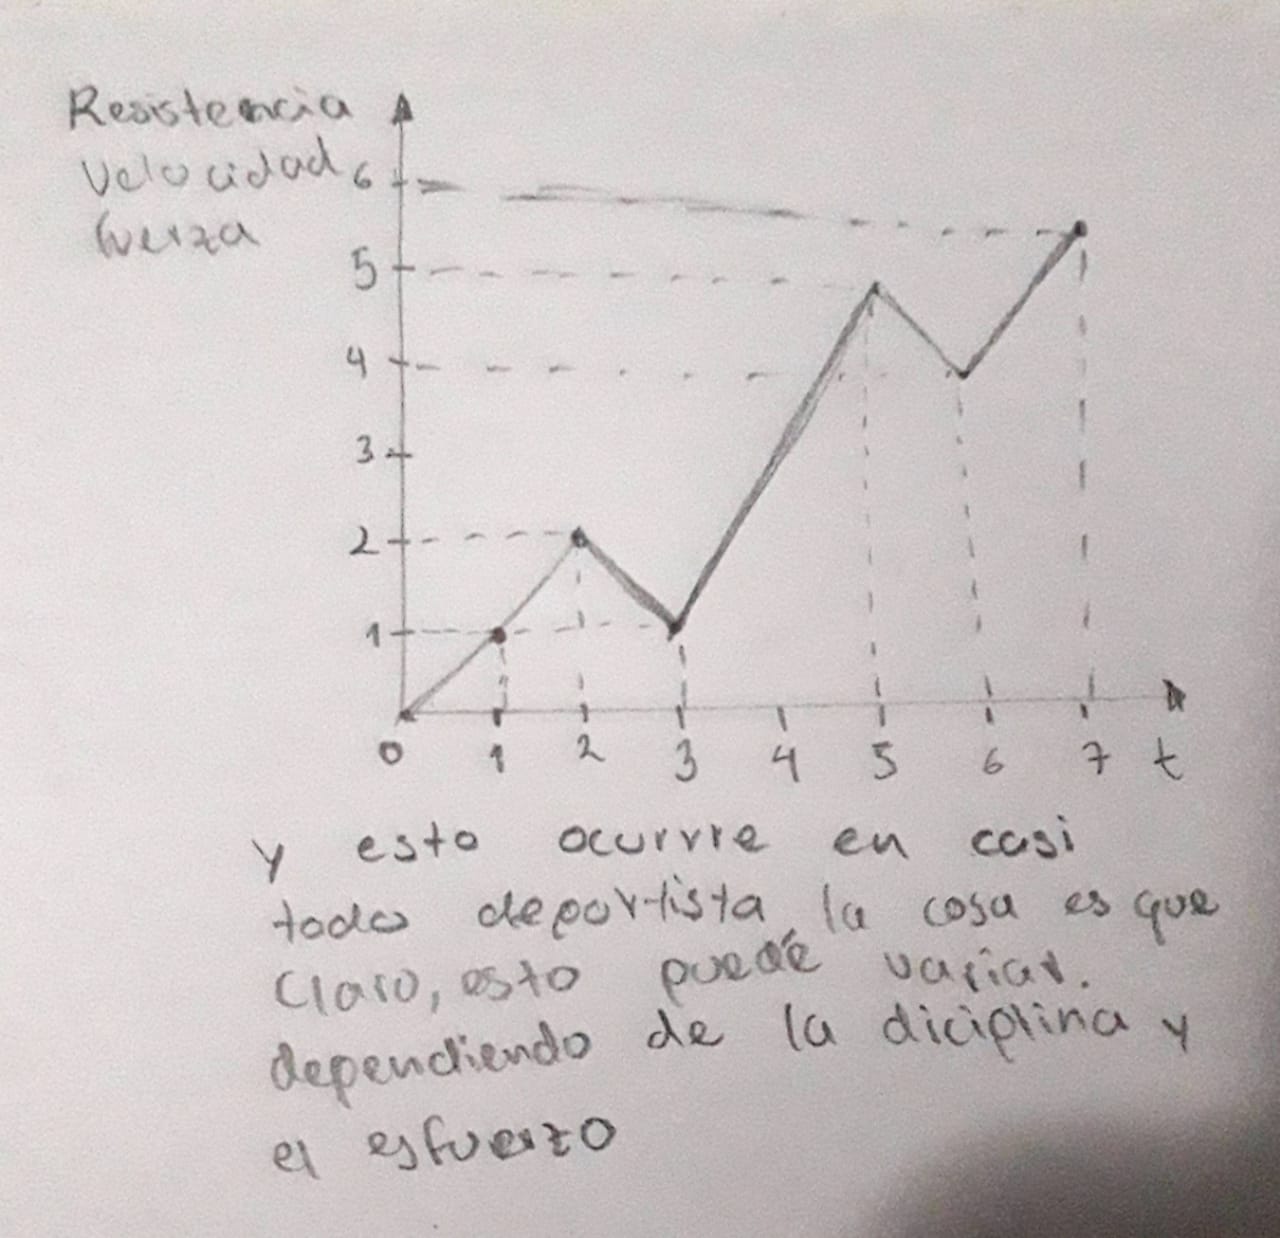 Resistencia
Velocidad
fuerza
6
5
4
3
2
1
0 1 2 3 4 5 6 7 t
y esto ocurrre en casi
todo deportista la cosa es que
Claro, esto puede variar.
dependiendo de la diciplina y
el esfuerzo